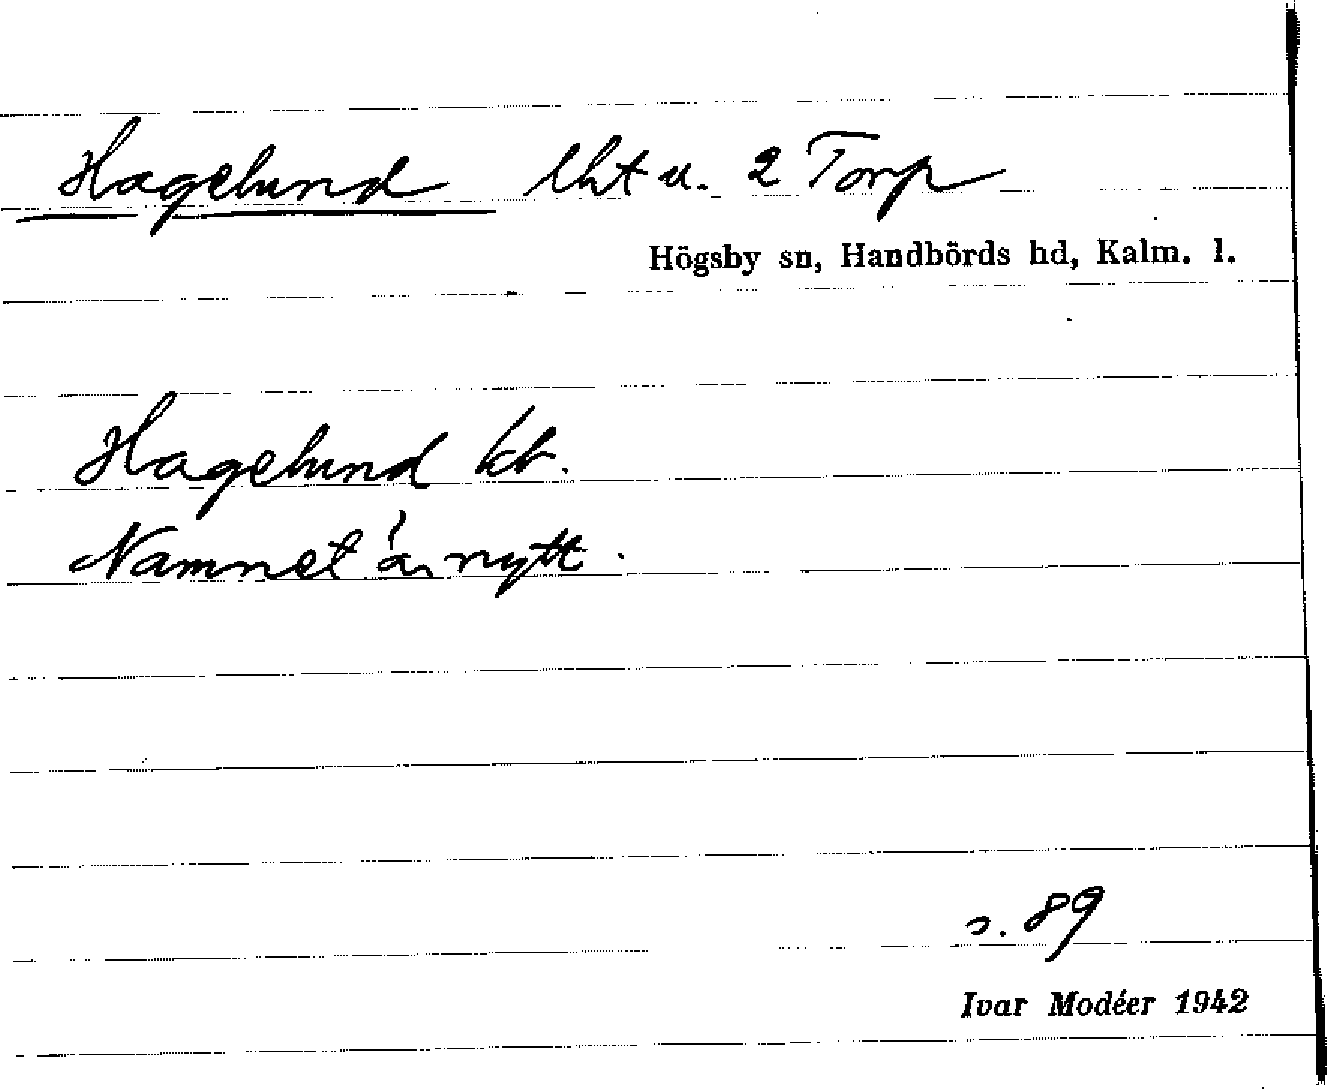 Hagelund lht u. 2 Torp
Högsby sn, Handbörds hd, Kalm. l.
Hagelund kb.
Namnet är nytt.
s. 89
Ivar Modéer 1942